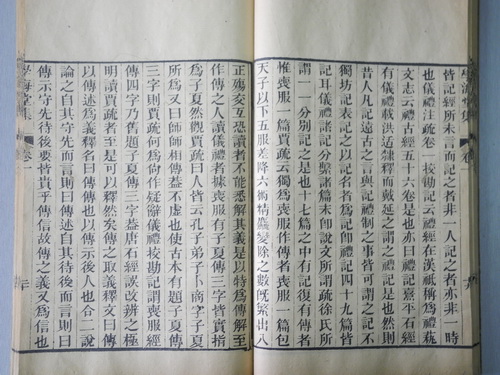 學海堂集
卷
皆記經所未言而記之者非一人記之者亦非一時
也儀禮注疏卷一校勘記云禮經在漢衹稱爲禮蓺
文志云禮古經五十六卷是也亦曰禮記熹平石經
有儀禮載洪适隸釋而戴延之謂之禮記是也然則
昔人凡記遠古之言與記禮制之事皆可謂之記不
獨坊記表記之以記名者爲記卽禮記四十九篇皆
記耳儀禮諸記分繫諸篇末卽說文所謂疏徐氏所
謂一一分別記之是也十七篇之中有記復有傳者
惟喪服一篇賈疏云獨爲喪服作傳者喪服一篇包
天子以下五服差降六術精麤變除之數旣繁出八
正殤交互恐讀者不能悉解其義是以特爲傳解至
作傳之人讀儀禮者子夏傳三字皆實指
爲子夏然觀賈疏曰人皆云孔子弟子卜商字子夏
所爲又曰師師相傳蓋不虛也使古本有題子夏傳
三字則賈疏何爲倘作疑辭儀禮校勘記謂喪服經
傳四字乃舊題子夏傳三字蓋唐石經誤改辨之極
明讀賈疏者至是可以釋然矣傳之取義釋文曰傳
以傳述爲義釋名曰傳傳也以傳示後人也合二說
論之自其守先而言則曰傳述自其待後而言則曰
傳示守先待後要皆貴乎傳信故傳之義又爲信也
學海堂集
卷